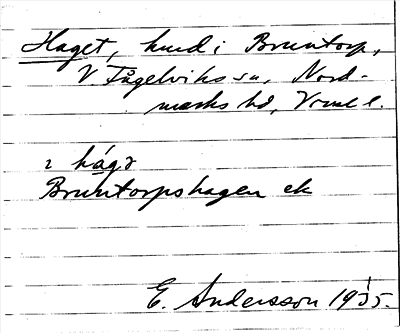 Haget, hmd i Bruntorp,
V. Fågelviks sn, Nord-
marks hd, Vrml l.
ı hágə
Bruntorpshagen ek
E. Andersson 1935.